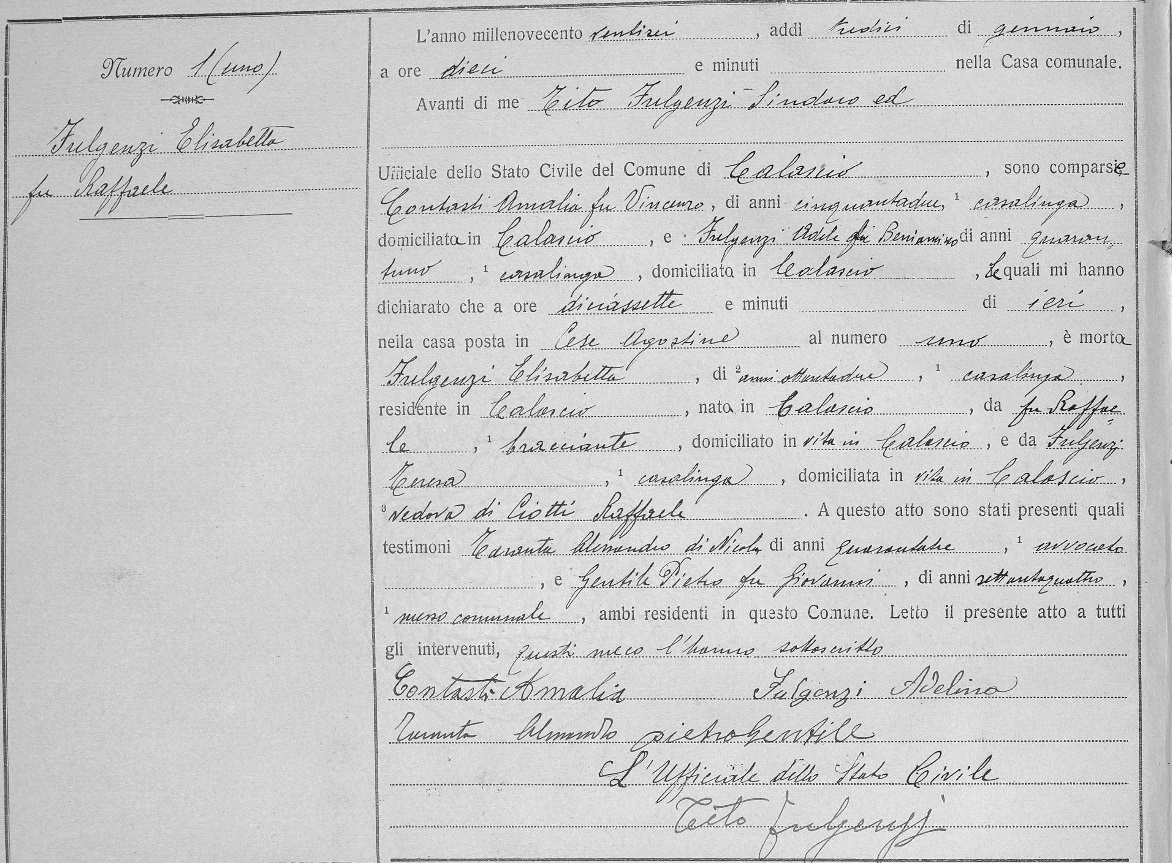 Numero 1 (uno)
Fulgenzi Elisabetta
fu Raffaele
L'anno millenovecento ventisei, addì tredici di gennaio,
a ore dieci e minuti nella Casa comunale.
Avanti di me Tito Fulgenzi Sindaco ed
Ufficiale dello Stato Civile del Comune di Calascio, sono comparsie
Contasti Amalia fu Vincenzo, di anni cinquantadue, ¹ casalinga,
domiciliata in Calascio, e Fulgenzi Adele fu Beniamino di anni quaran
tuno, ¹ casalinga, domiciliato in Calascio, le quali mi hanno
dichiarato che a ore diciassette e minuti di ieri,
nella casa posta in Cese Agostine al numero uno, è morta
Fulgenzi Elisabetta, di ² anni ottantadue, ¹ casalinga,
residente in Calascio, nata in Calascio, da fu Raffae=
le, ¹ bracciante, domiciliato in vita in Calascio, e da Fulgenzi
Teresa, ¹ casalinga, domiciliata in vita in Calascio,
³ vedova di Ciotti Raffaele. A questo atto sono stati presenti quali
testimoni Taranta Alessandro di Nicola di anni quarantatre, ¹ avvocato
, e Gentile Pietro fu Giovanni, di anni settantaquattro,
¹ messo comunale, ambi residenti in questo Comune. Letto il presente atto a tutti
gli intervenuti, questi meco l'hanno sottoscritto
Contasti Amalia Fulgenzi Adelina
Taranta pietro Gentile
L'Ufficiale dello Stato Civile
Tito Fulgenzi